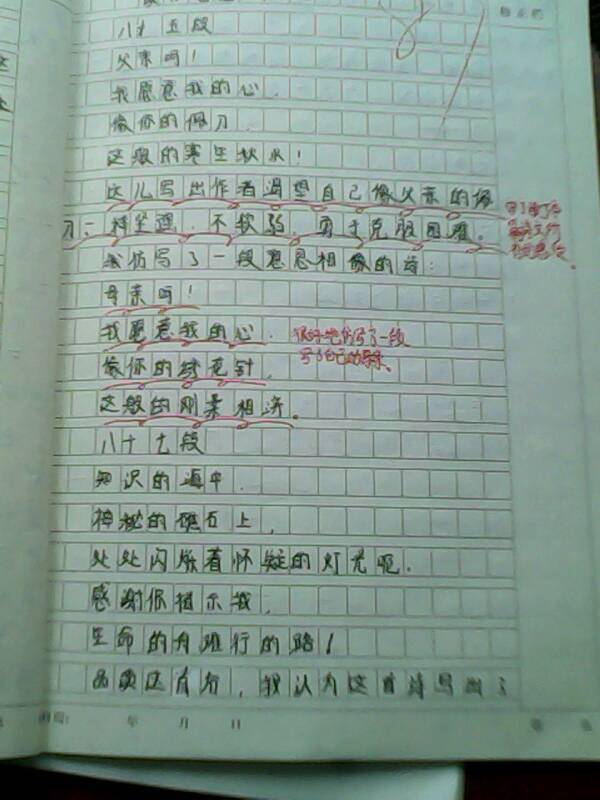 八十五段
父亲呵！
我愿意我的心，
像你的佩刀，
这般的寒生秋水！
这儿写出作者渴望自己像父亲的佩
刀一样坚强，不软弱，勇于克服困难。
我仿写了一段意思相像的诗：
母亲呵！
我愿意我的心，
像你的绣花针，
这般的刚柔相济。
很好地仿写了一段
写了自己的母亲。
八十七段
知识的海中，
神秘的礁石上，
处处闪烁着怀疑的灯光呢。
感谢你指示我，
生命的舟难行的路！
品读这首诗，我认为这首诗写出了
年 月 日